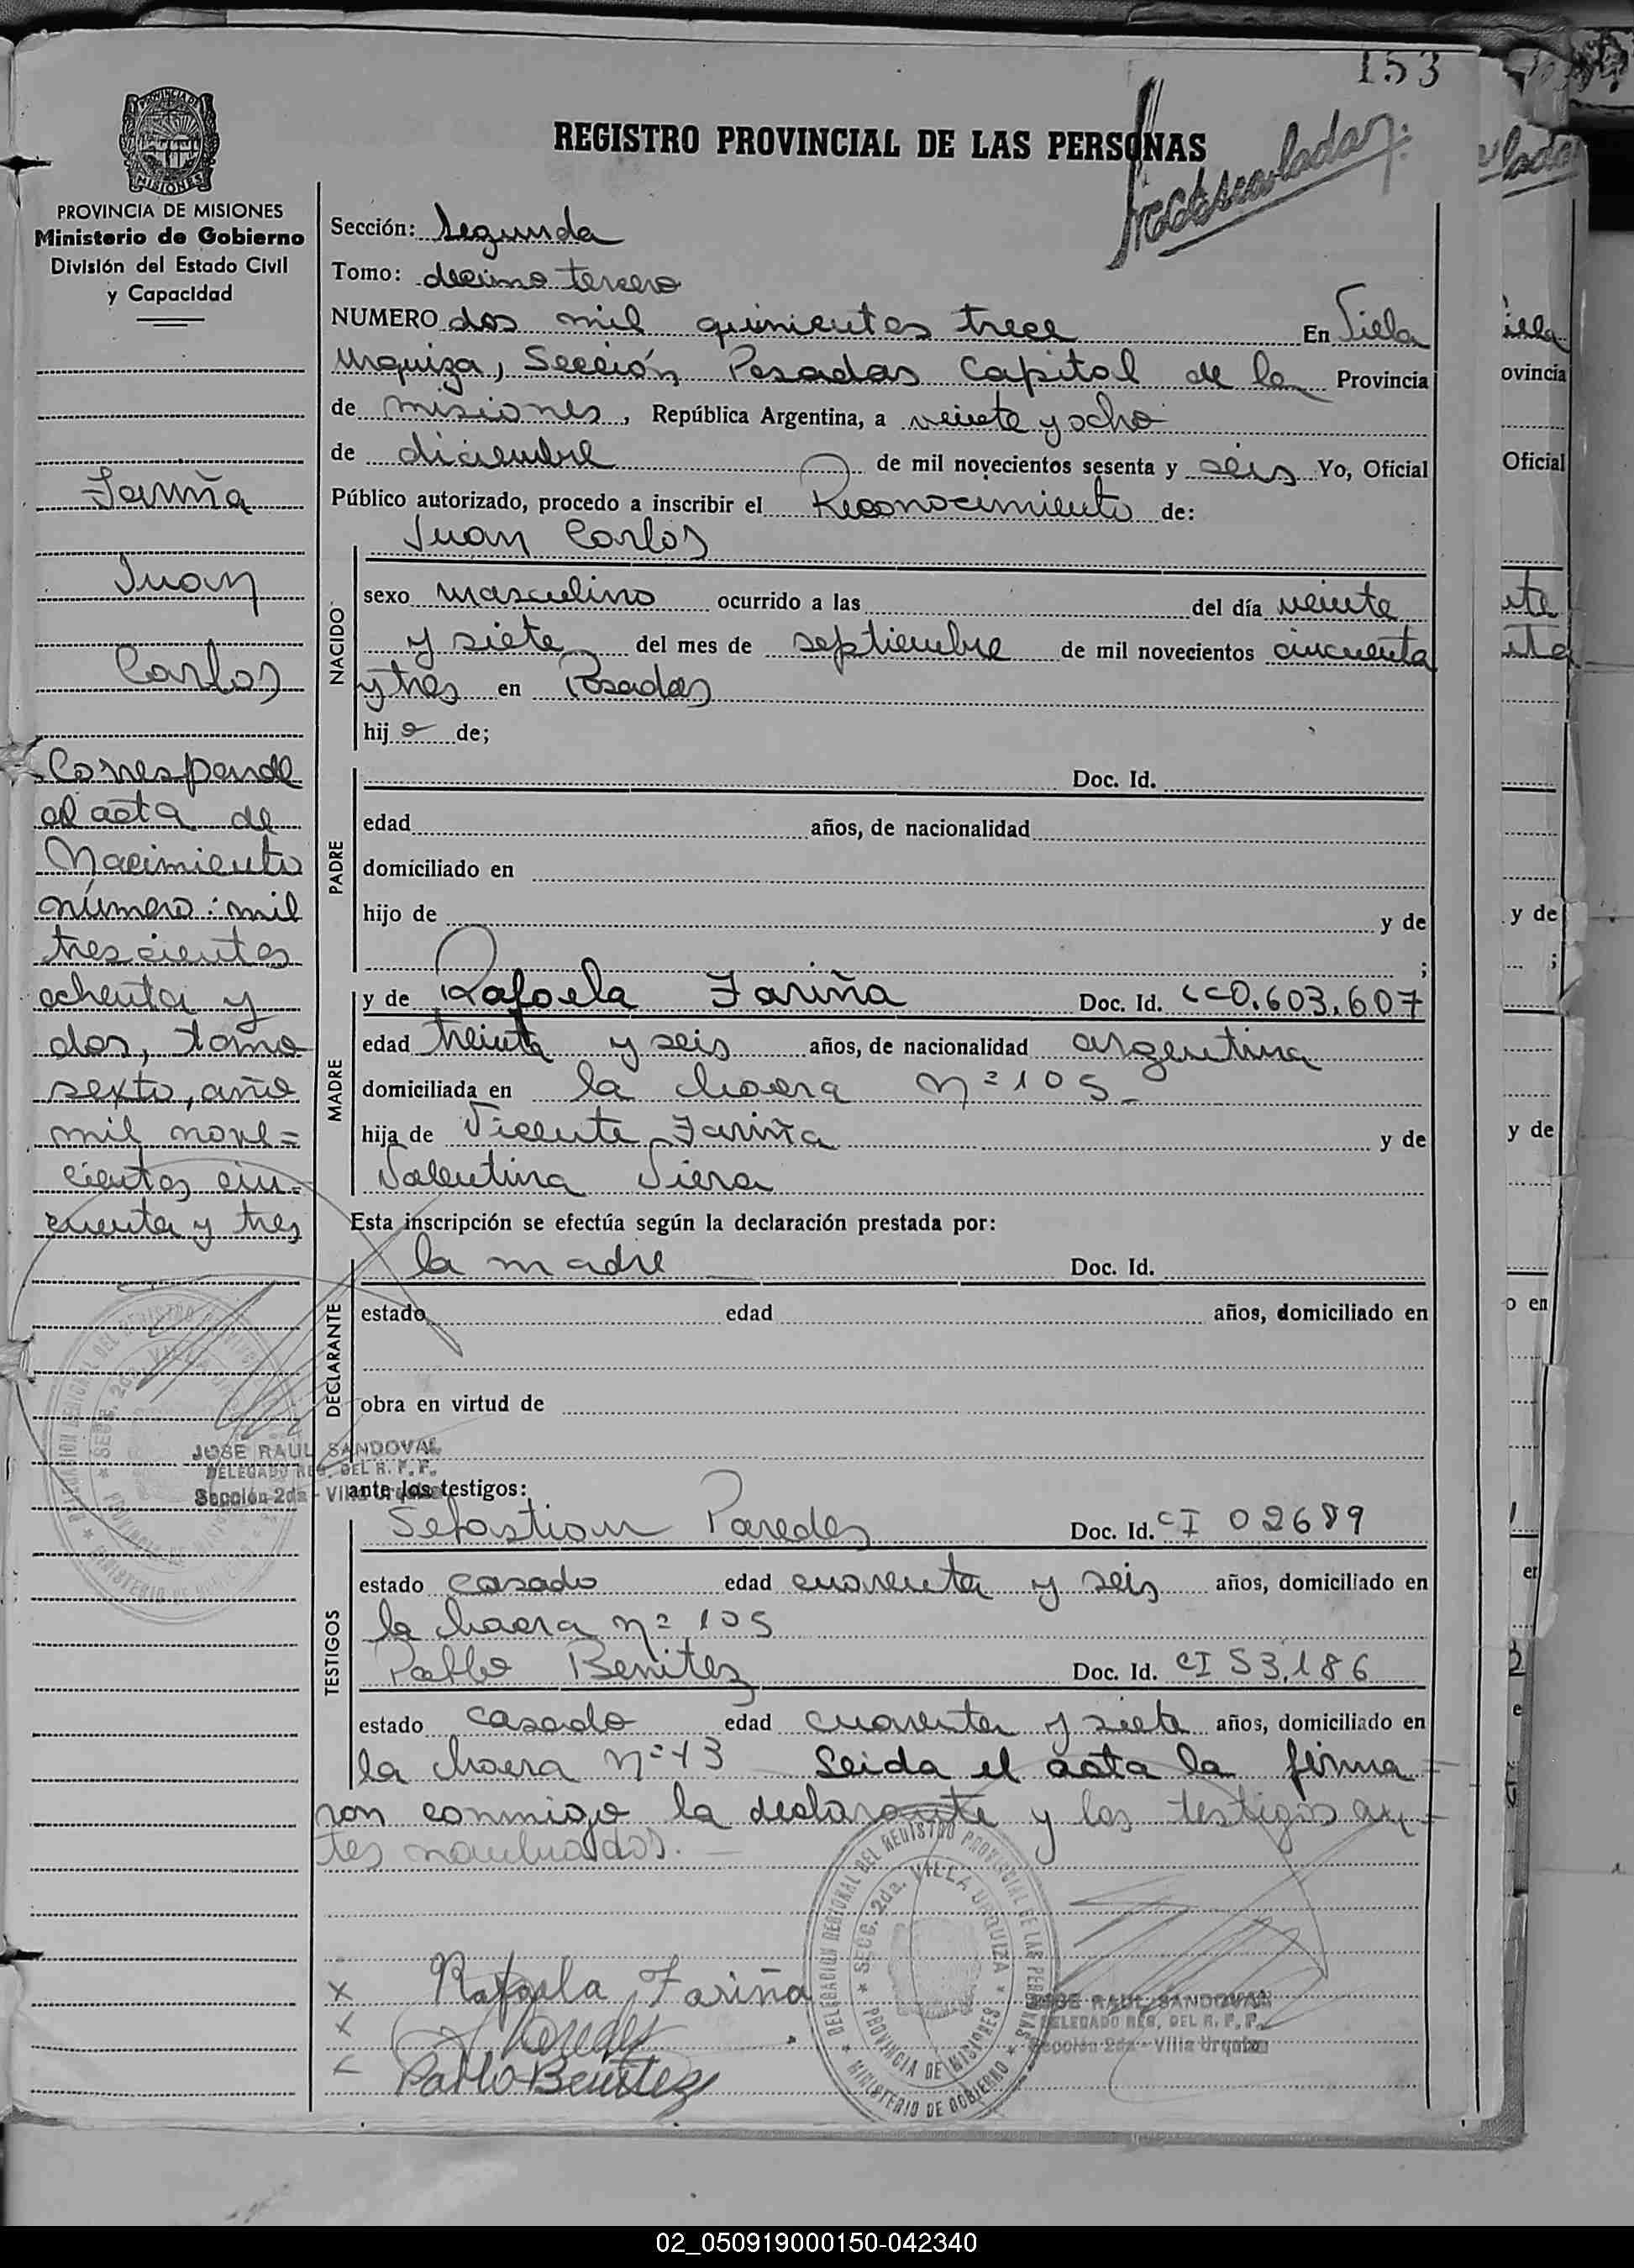 153
REGISTRO PROVINCIAL DE LAS PERSONAS
PROVINCIA DE MISIONES
Ministerio de Gobierno
División del Estado Civil
y Capacidad
Fariña
Juan
Carlos
Corresponde
al acta de
Nacimiento
número: mil
trescientos
ochenta y
dos, tomo
sexto, año
mil nove=
cientos cin=
cuenta y tres
JOSE RAUL SANDOVAL
DELEGADO REG. DEL R. P. P.
Sección 2da - Villa Urquiza
Sección: Segunda
Tomo: decimo tercero
NUMERO dos mil quinientos trece En Villa
Urquiza, Sección Posadas Capital de la Provincia
de misiones, República Argentina, a veinte y ocho
de diciembre de mil novecientos sesenta y seis Yo, Oficial
Público autorizado, procedo a inscribir el Reconocimiento de:
Juan Carlos
NACIDO
sexo masculino ocurrido a las del día veinte
y siete del mes de septiembre de mil novecientos cincuenta
y tres en Posadas
hijo de;
PADRE
Doc. Id.
edad años, de nacionalidad
domiciliado en
hijo de y de
;
MADRE
y de Rafaela Fariña Doc. Id. 0.603.607
edad treinta y seis años, de nacionalidad argentina
domiciliada en la chacra nº 105_
hija de Vicente Fariña y de
Valentina Viera
Esta inscripción se efectúa según la declaración prestada por:
DECLARANTE
la madre Doc. Id.
estado edad años, domiciliado en
obra en virtud de
ante los testigos:
TESTIGOS
Sebastian Paredes Doc. Id. CI 02689
estado casado edad cuarenta y seis años, domiciliado en
la chacra nº 105
Pablo Benitez Doc. Id. CI 53.186
estado casado edad cuarenta y siete años, domiciliado en
la chacra nº 43 Leida el acta la firma=
ron conmigo la declarante y los testigos an=
tes nombrados.
DELEGACION REGIONAL DEL REGISTRO PROVINCIAL DE LAS PERSONAS
SECC. 2da. VILLA URQUIZA
PROVINCIA DE MISIONES
MINISTERIO DE GOBIERNO
x Rafaela Fariña
x Paredes
x Pablo Benitez
JOSE RAUL SANDOVAL
DELEGADO REG. DEL R. P. P.
Sección 2da - Villa Urquiza
02_050919000150-042340